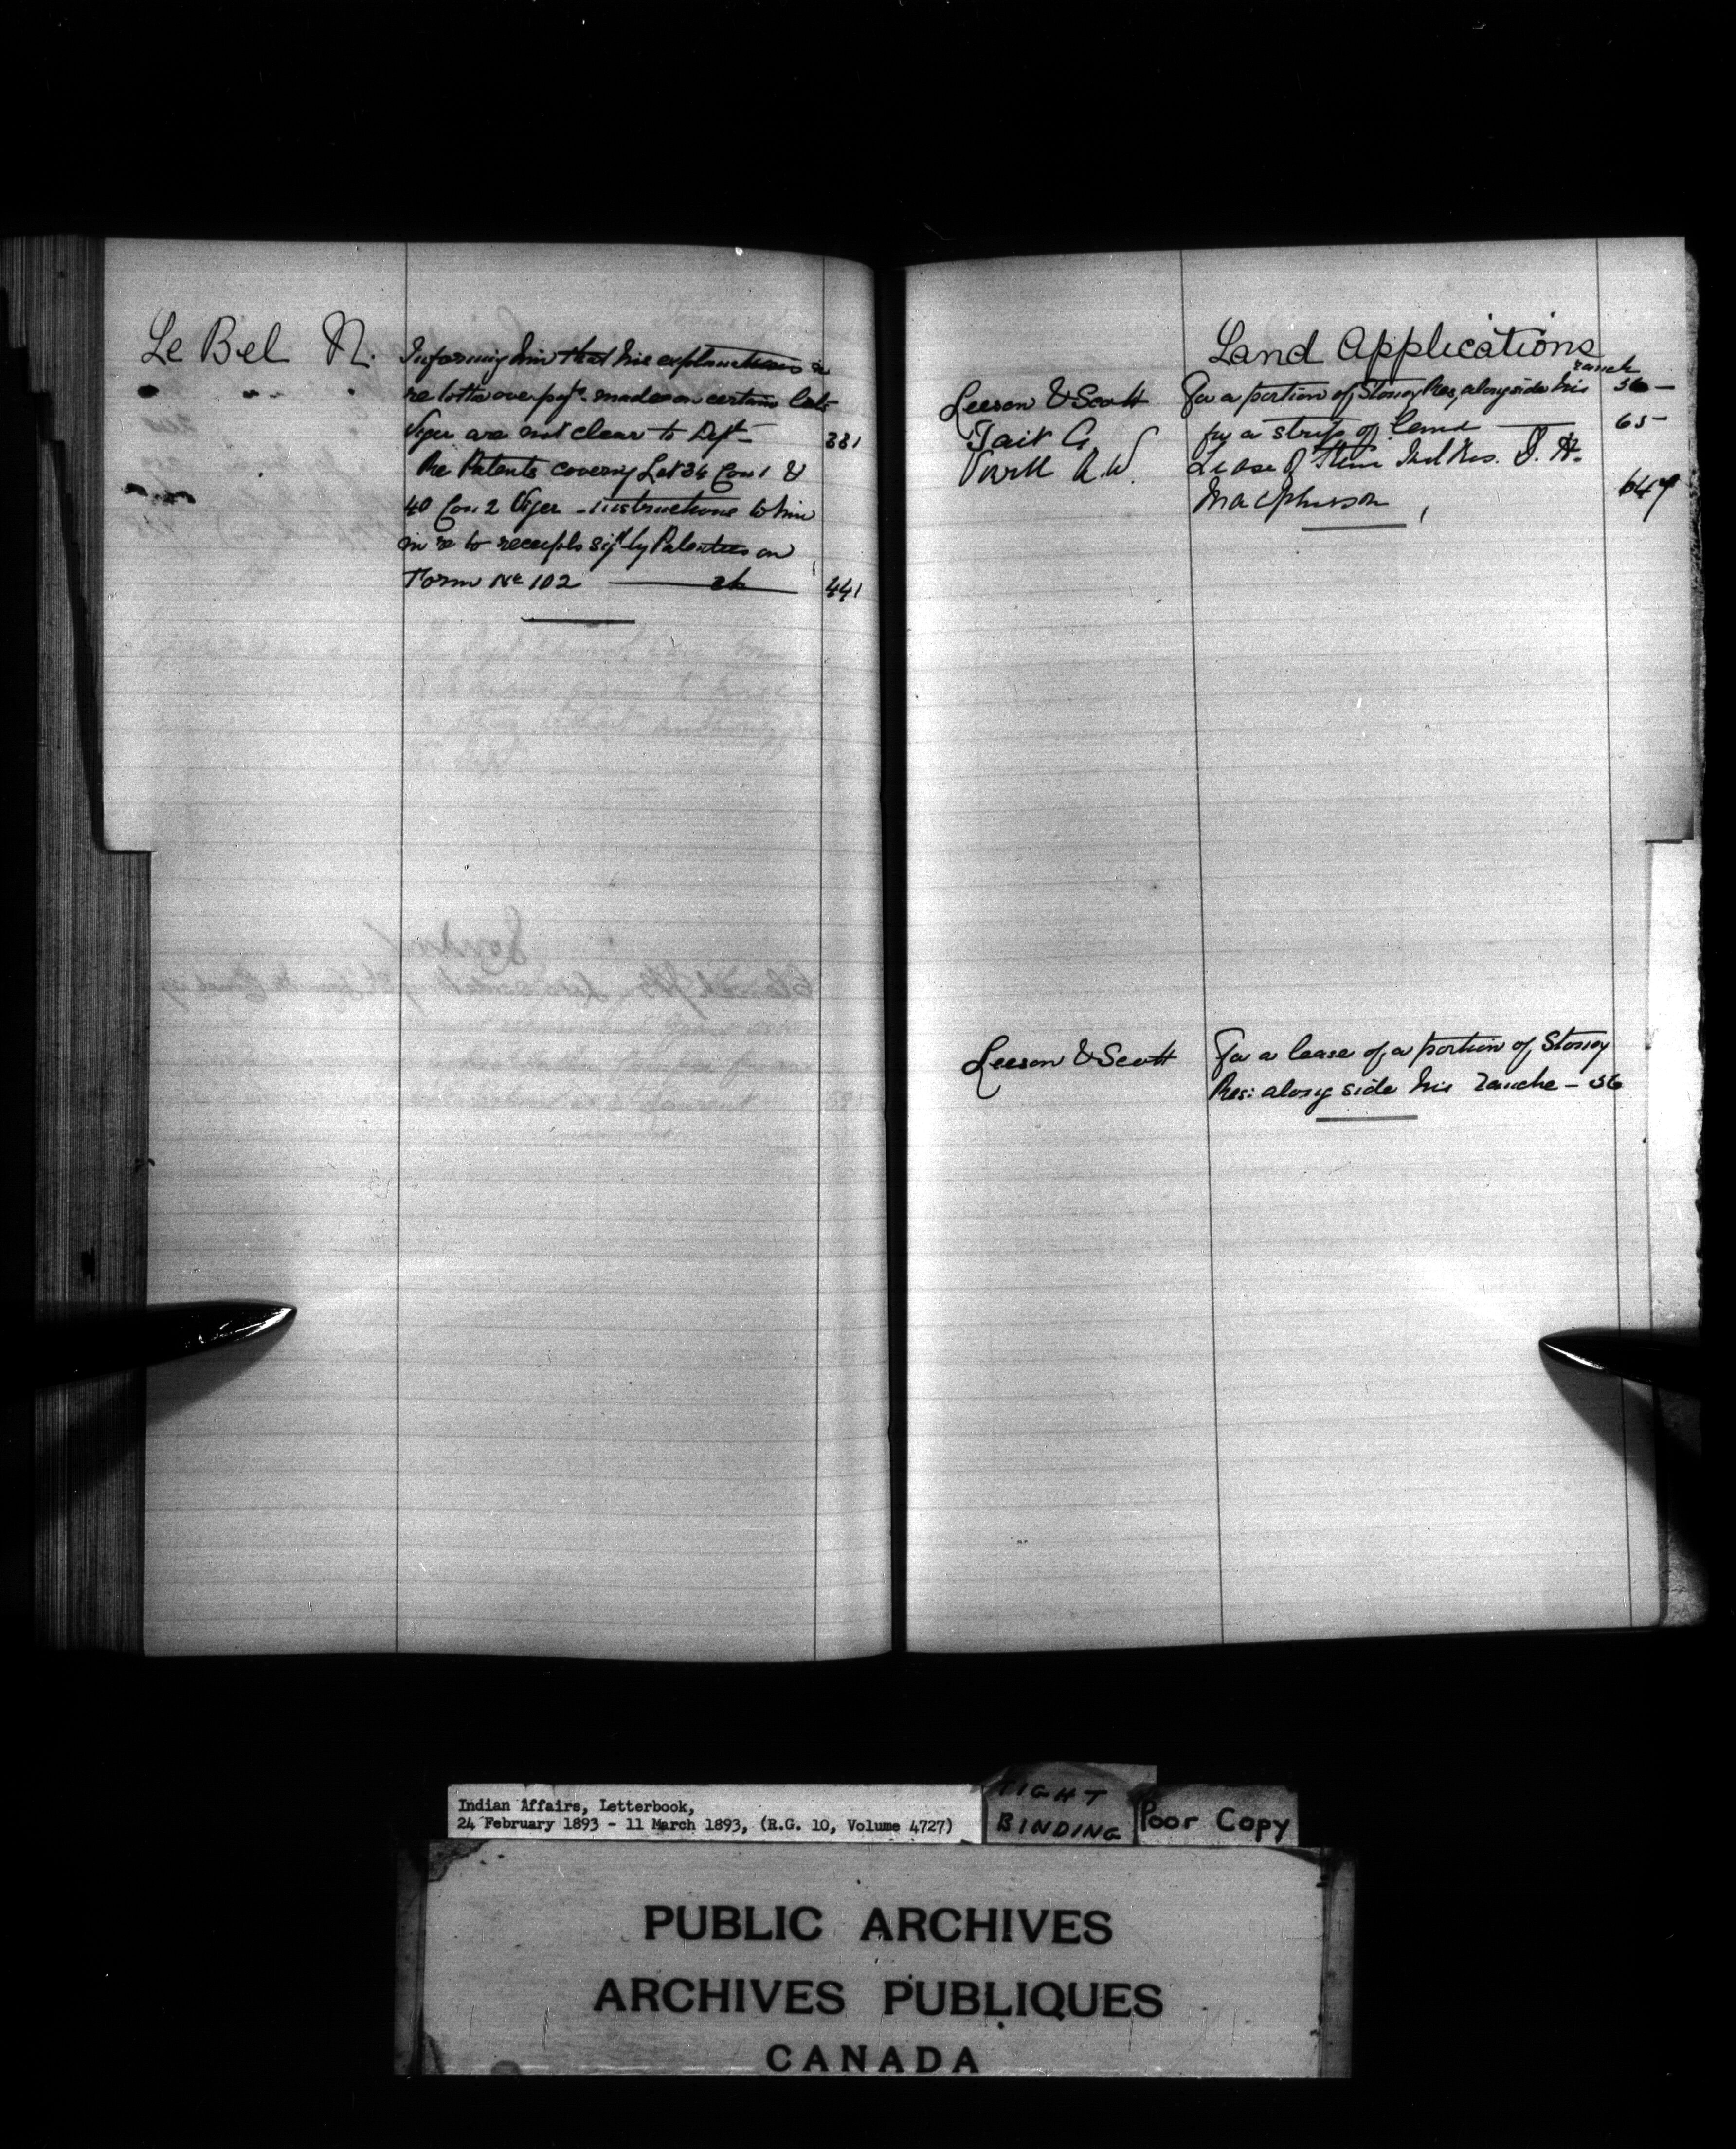 Le Bel N.
Informing him that his explanations in
re to the over pay't made on certain lots
Viger are not clear to Dep't 381
Re Patents covering Lot 36 Con 1 &
40 Con 2 Viger - instructions to him
in re to receipts by Patentees on
Form No 102 441
Land Applications
ranch
Leeson & Scott For a portion of Stoney Res. alongside his 36 —
Tait G. for a strip of land 65
A. W. Lease of Ind Res.
MacPherson
Leeson & Scott For a lease of a portion of Stoney
Res: along side his ranche - 36
Indian Affairs, Letterbook,
24 February 1893 - 11 March 1893, (R.G. 10, Volume 4727)
TIGHT
BINDING
Poor Copy
PUBLIC ARCHIVES
ARCHIVES PUBLIQUES
CANADA